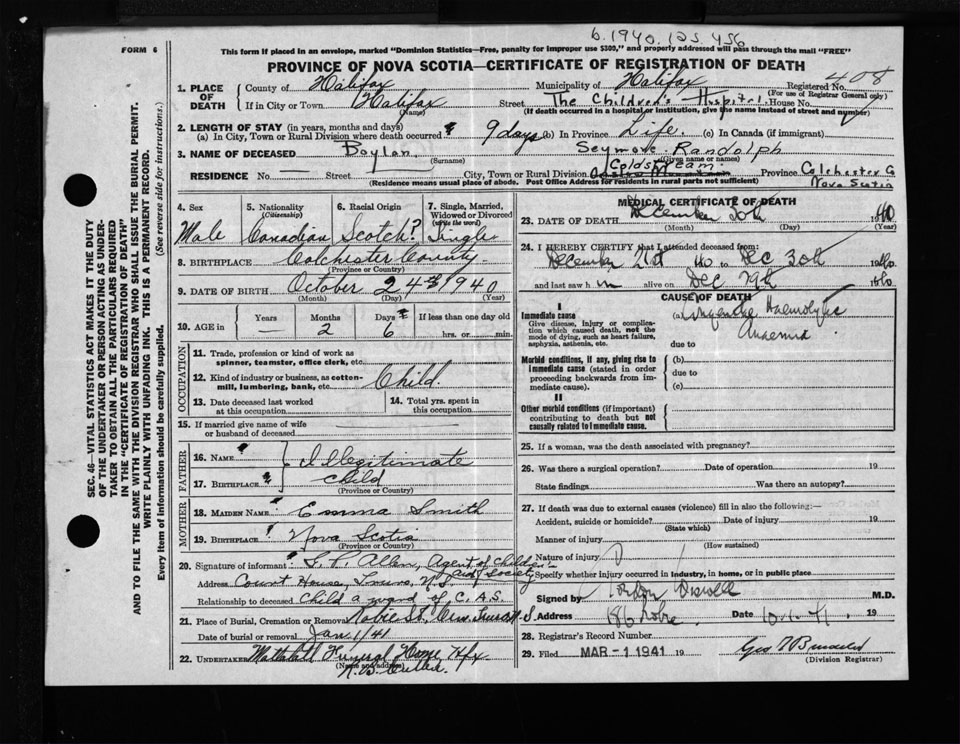 b. 1940. 125. 456
FORM 6
This form if placed in an envelope, marked "Dominion Statistics—Free, penalty for improper use $300," and properly addressed will pass through the mail "FREE"
PROVINCE OF NOVA SCOTIA—CERTIFICATE OF REGISTRATION OF DEATH
SEC. 46—VITAL STATISTICS ACT MAKES IT THE DUTY
OF THE UNDERTAKER OR PERSON ACTING AS UNDER-
TAKER TO OBTAIN ALL THE PARTICULARS REQUIRED
IN THE "CERTIFICATE OF REGISTRATION OF DEATH"
AND TO FILE THE SAME WITH THE DIVISION REGISTRAR WHO SHALL ISSUE THE BURIAL PERMIT.
WRITE PLAINLY WITH UNFADING INK. THIS IS A PERMANENT RECORD.
Every item of information should be carefully supplied. (See reverse side for instructions.)
1. PLACE OF DEATH County of Halifax Municipality of Halifax Registered No. 408
(For use of Registrar General only)
If in City or Town Halifax Street The Children's Hospital House No.
(Name) (If death occurred in a hospital or institution, give the name instead of street and number)
2. LENGTH OF STAY (in years, months and days)
(a) In City, Town or Rural Division where death occurred 9 days (b) In Province Life. (c) In Canada (if immigrant)
3. NAME OF DECEASED Boylan, Seymore Randolph
(Surname) (Given name or names)
RESIDENCE No. — Street City, Town or Rural Division Coldstream Province Colchester Co
Nova Scotia
(Residence means usual place of abode. Post Office Address for residents in rural parts not sufficient)
4. Sex 5. Nationality (Citizenship) 6. Racial Origin 7. Single, Married, Widowed or Divorced (write the word)
Male Canadian Scotch? Single
8. BIRTHPLACE Colchester County
(Province or Country)
9. DATE OF BIRTH October 24 1940
(Month) (Day) (Year)
10. AGE in Years Months Days If less than one day old
— 2 6 hrs. or min.
OCCUPATION
11. Trade, profession or kind of work as spinner, teamster, office clerk, etc.
12. Kind of industry or business, as cotton-mill, lumbering, bank, etc. Child.
13. Date deceased last worked at this occupation
14. Total yrs. spent in this occupation
15. If married give name of wife or husband of deceased
FATHER
16. Name Illegitimate
17. Birthplace child
(Province or Country)
MOTHER
18. Maiden Name: Emma Smith
19. Birthplace Nova Scotia
(Province or Country)
20. Signature of informant: Allen, Agent of Children's
Aid Society
Address Court House, Truro, N.S.
Relationship to deceased Child a ward of C.A.S.
21. Place of Burial, Cremation or Removal Robie St. Cem. Truro N.S
Date of burial or removal Jan 1/41
22. UNDERTAKER Funeral Home Hfx
(Name and address)
MEDICAL CERTIFICATE OF DEATH
23. DATE OF DEATH December 30th 1940
(Month) (Day) (Year)
24. I HEREBY CERTIFY that I attended deceased from:
December 21st 40 to Dec 30th 1940
and last saw him alive on Dec 29th 1940
CAUSE OF DEATH
I
Immediate cause (a) Haemolytic
Anaemia
Give disease, injury or complication which caused death, not the mode of dying, such as heart failure, asphyxia, asthenia, etc.
due to
Morbid conditions, if any, giving rise to immediate cause (stated in order proceeding backwards from immediate cause).
(b)
due to
(c)
II
Other morbid conditions (if important) contributing to death but not causally related to immediate cause.
25. If a woman, was the death associated with pregnancy?
26. Was there a surgical operation? Date of operation 19
State findings Was there an autopsy?
27. If death was due to external causes (violence) fill in also the following:—
Accident, suicide or homicide? Date of injury 19
(State which)
Manner of injury
(How sustained)
Nature of injury
Specify whether injury occurred in industry, in home, or in public place
Signed by M.D.
Address 186 Date 10.1.41. 19
28. Registrar's Record Number
29. Filed MAR - 1 1941 19 Geo
(Division Registrar)